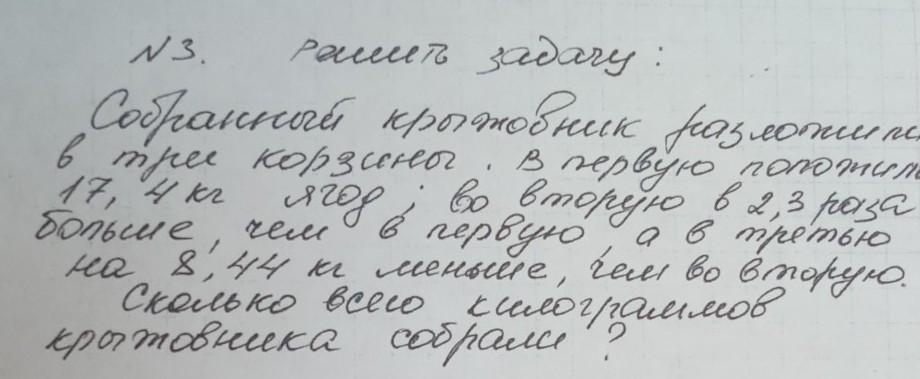 N3. Решить задачу:
Собранный крыжовник разложили
в три корзины. В первую положили
17,4 кг ягод; во вторую в 2,3 раза
больше, чем в первую, а в третью
на 8,44 кг меньше, чем во вторую.
Сколько всего килограммов
крыжовника собрали?